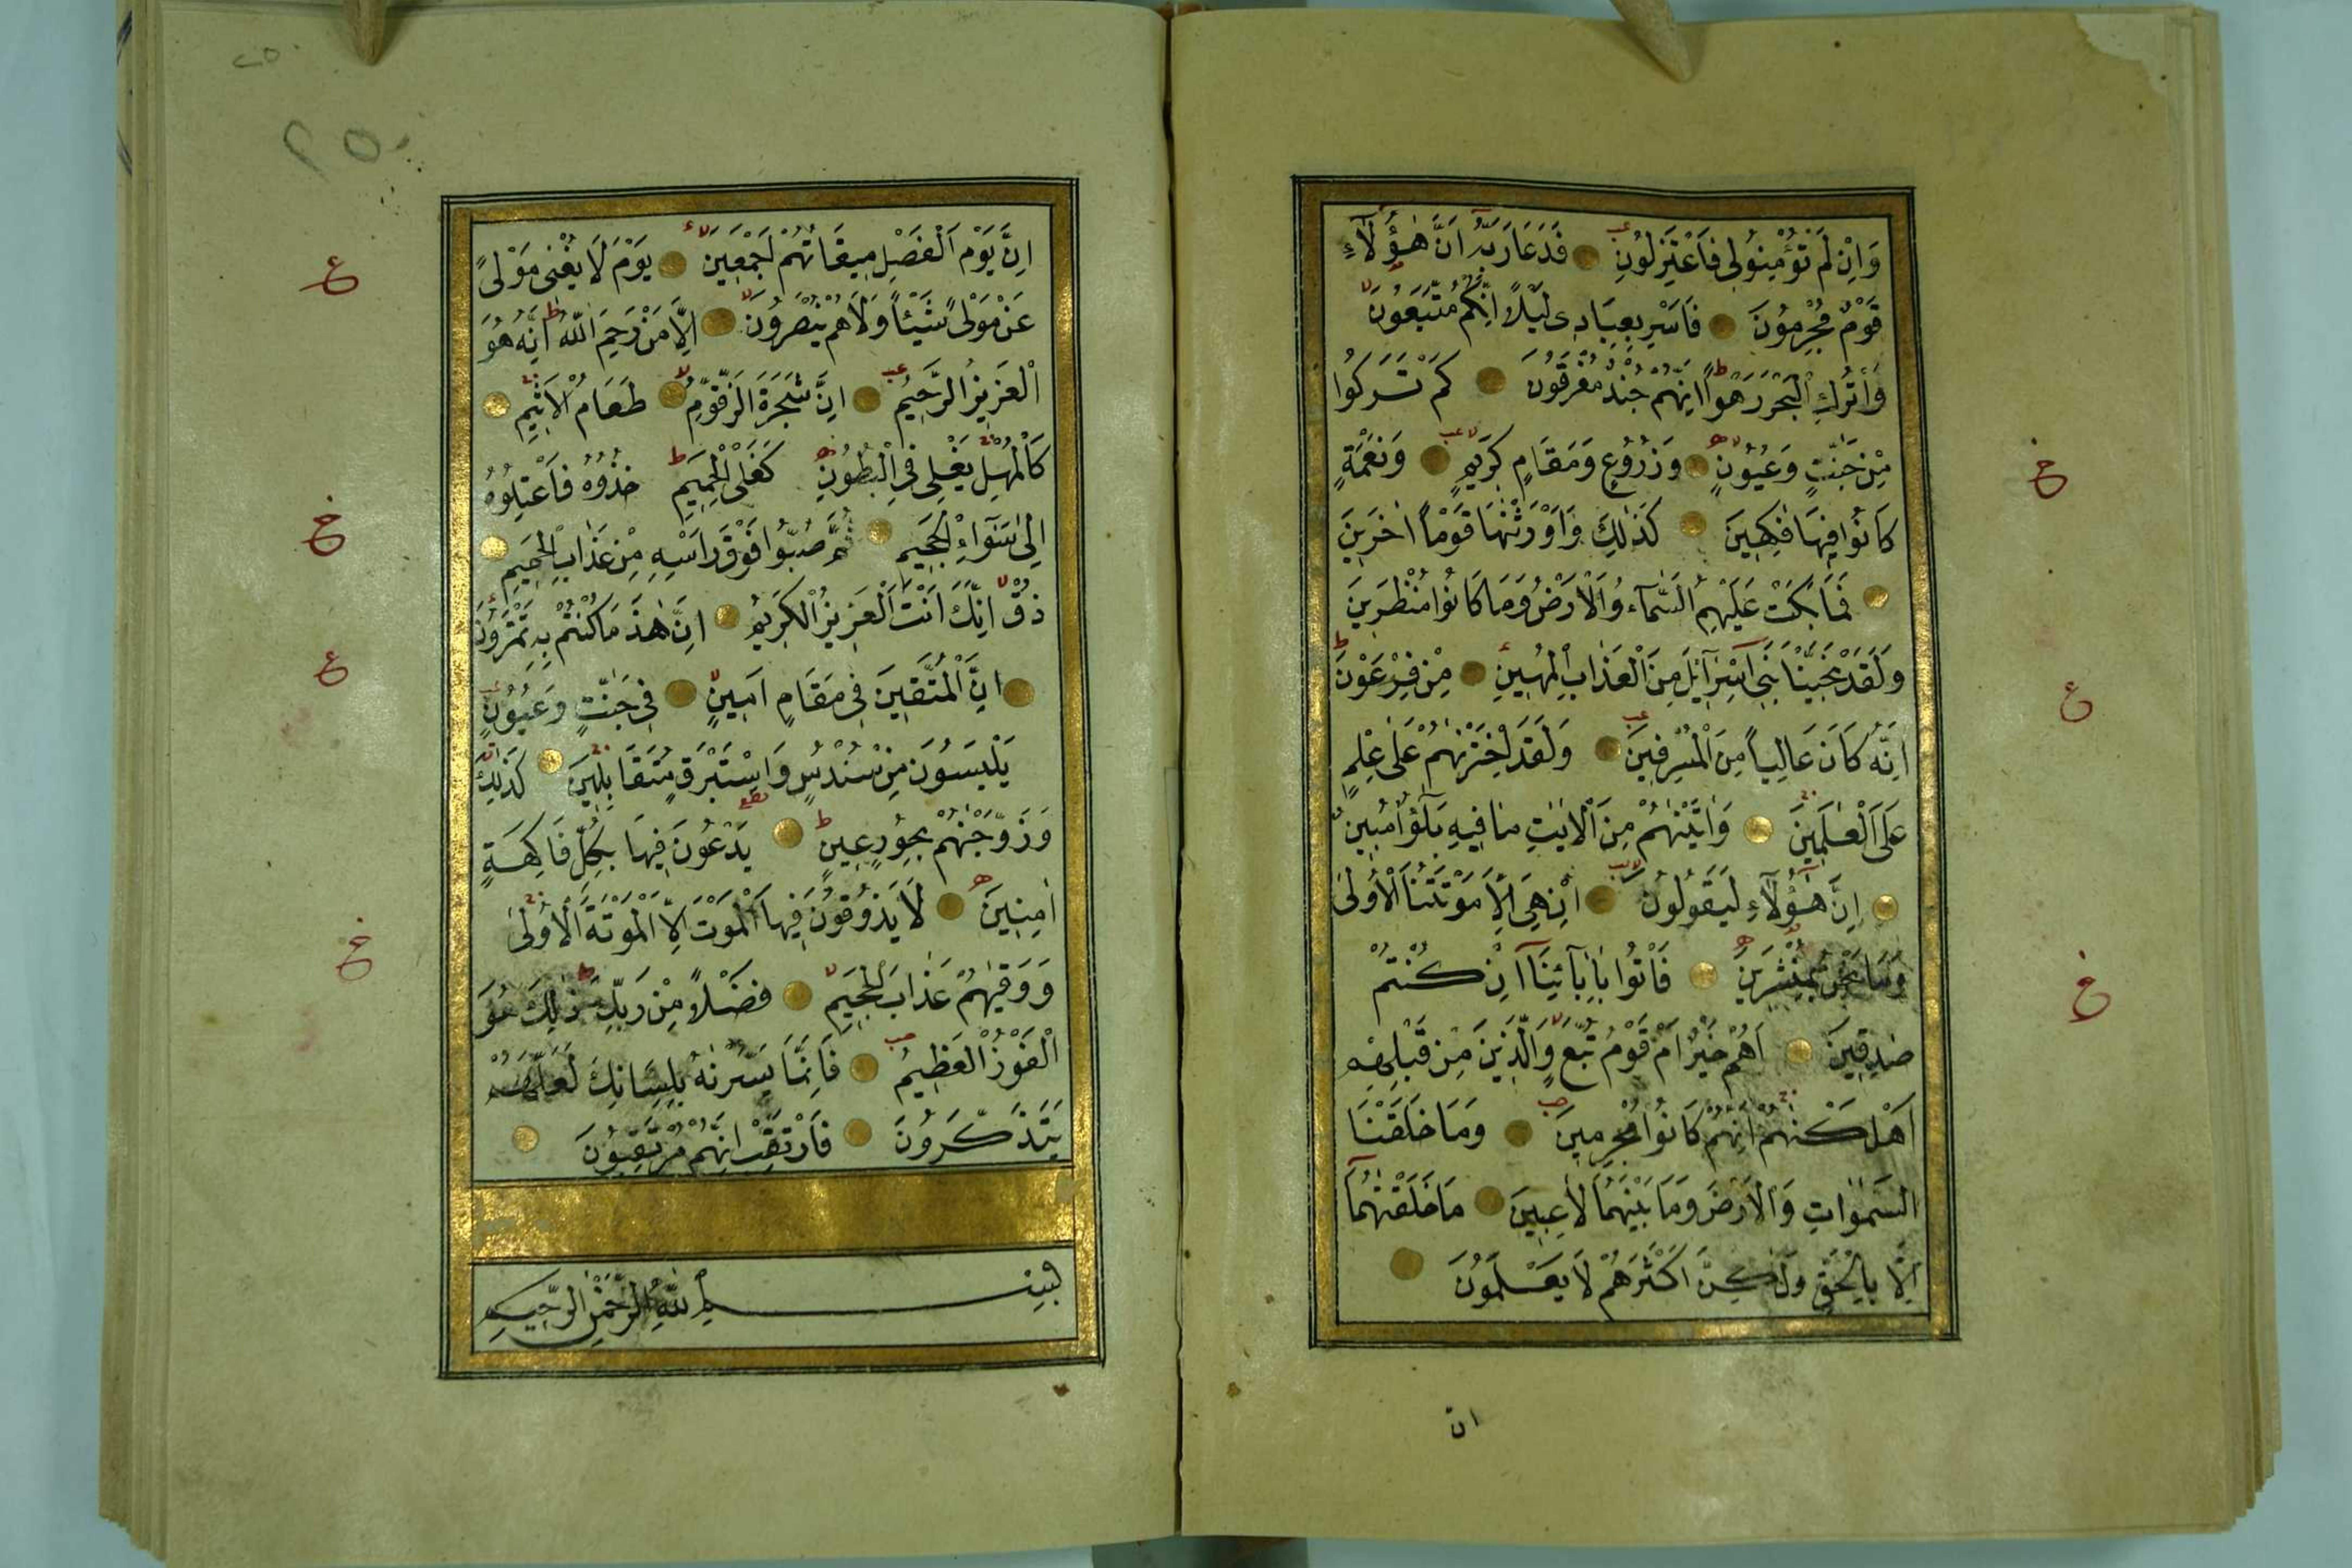 وَاِنْ لَمْ تُؤْمِنُوا لِى فَاعْتَزِلُونِ فَدَعَا رَبَّهُ اَنَّ هٰؤُلَآءِ
قَوْمٌ مُجْرِمُونَ فَاَسْرِ بِعِبَادِى لَيْلًا اِنَّكُمْ مُتَّبَعُونَ
وَاتْرُكِ الْبَحْرَ رَهْوًا اِنَّهُمْ جُنْدٌ مُغْرَقُونَ كَمْ تَرَكُوا
مِنْ جَنّٰتٍ وَعُيُونٍ وَزُرُوعٍ وَمَقَامٍ كَرِيمٍ وَنَعْمَةٍ
كَانُوا فِيهَا فٰكِهِينَ كَذٰلِكَ وَاَوْرَثْنٰهَا قَوْمًا اٰخَرِينَ
فَمَا بَكَتْ عَلَيْهِمُ السَّمَآءُ وَالْاَرْضُ وَمَا كَانُوا مُنْظَرِينَ
وَلَقَدْ نَجَّيْنَا بَنِى اِسْرَآئِلَ مِنَ الْعَذَابِ الْمُهِينِ مِنْ فِرْعَوْنَ
اِنَّهُ كَانَ عَالِيًا مِنَ الْمُسْرِفِينَ وَلَقَدِ اخْتَرْنٰهُمْ عَلٰى عِلْمٍ
عَلَى الْعٰلَمِينَ وَاٰتَيْنٰهُمْ مِنَ الْاٰيٰتِ مَا فِيهِ بَلٰٓؤٌا مُبِينٌ
اِنَّ هٰؤُلَآءِ لَيَقُولُونَ اِنْ هِىَ اِلَّا مَوْتَتُنَا الْاُولٰى
وَمَا نَحْنُ بِمُنْشَرِينَ فَاْتُوا بِاٰبَآئِنَآ اِنْ كُنْتُمْ
صٰدِقِينَ اَهُمْ خَيْرٌ اَمْ قَوْمُ تُبَّعٍ وَالَّذِينَ مِنْ قَبْلِهِمْ
اَهْلَكْنٰهُمْ اِنَّهُمْ كَانُوا مُجْرِمِينَ وَمَا خَلَقْنَا
السَّمٰوَاتِ وَالْاَرْضَ وَمَا بَيْنَهُمَا لَاعِبِينَ مَا خَلَقْنٰهُمَآ
اِلَّا بِالْحَقِّ وَلٰكِنَّ اَكْثَرَهُمْ لَا يَعْلَمُونَ
ان
اِنَّ يَوْمَ الْفَصْلِ مِيقَاتُهُمْ اَجْمَعِينَ يَوْمَ لَا يُغْنِى مَوْلًى
عَنْ مَوْلًى شَيْئًا وَلَا هُمْ يُنْصَرُونَ اِلَّا مَنْ رَحِمَ اللّٰهُ اِنَّهُ هُوَ
الْعَزِيزُ الرَّحِيمُ اِنَّ شَجَرَةَ الزَّقُّومِ طَعَامُ الْاَثِيمِ
كَالْمُهْلِ يَغْلِى فِى الْبُطُونِ كَغَلْىِ الْحَمِيمِ خُذُوهُ فَاعْتِلُوهُ
اِلٰى سَوَآءِ الْجَحِيمِ ثُمَّ صُبُّوا فَوْقَ رَاْسِهِ مِنْ عَذَابِ الْحَمِيمِ
ذُقْ اِنَّكَ اَنْتَ الْعَزِيزُ الْكَرِيمُ اِنَّ هٰذَا مَا كُنْتُمْ بِهِ تَمْتَرُونَ
اِنَّ الْمُتَّقِينَ فِى مَقَامٍ اَمِينٍ فِى جَنّٰتٍ وَعُيُونٍ
يَلْبَسُونَ مِنْ سُنْدُسٍ وَاِسْتَبْرَقٍ مُتَقَابِلِينَ كَذٰلِكَ
وَزَوَّجْنٰهُمْ بِحُورٍ عِينٍ يَدْعُونَ فِيهَا بِكُلِّ فَاكِهَةٍ
اٰمِنِينَ لَا يَذُوقُونَ فِيهَا الْمَوْتَ اِلَّا الْمَوْتَةَ الْاُولٰى
وَوَقٰيهُمْ عَذَابَ الْجَحِيمِ فَضْلًا مِنْ رَبِّكَ ذٰلِكَ هُوَ
الْفَوْزُ الْعَظِيمُ فَاِنَّمَا يَسَّرْنٰهُ بِلِسَانِكَ لَعَلَّهُمْ
يَتَذَكَّرُونَ فَارْتَقِبْ اِنَّهُمْ مُرْتَقِبُونَ
بِسْمِ اللّٰهِ الرَّحْمٰنِ الرَّحِيمِ